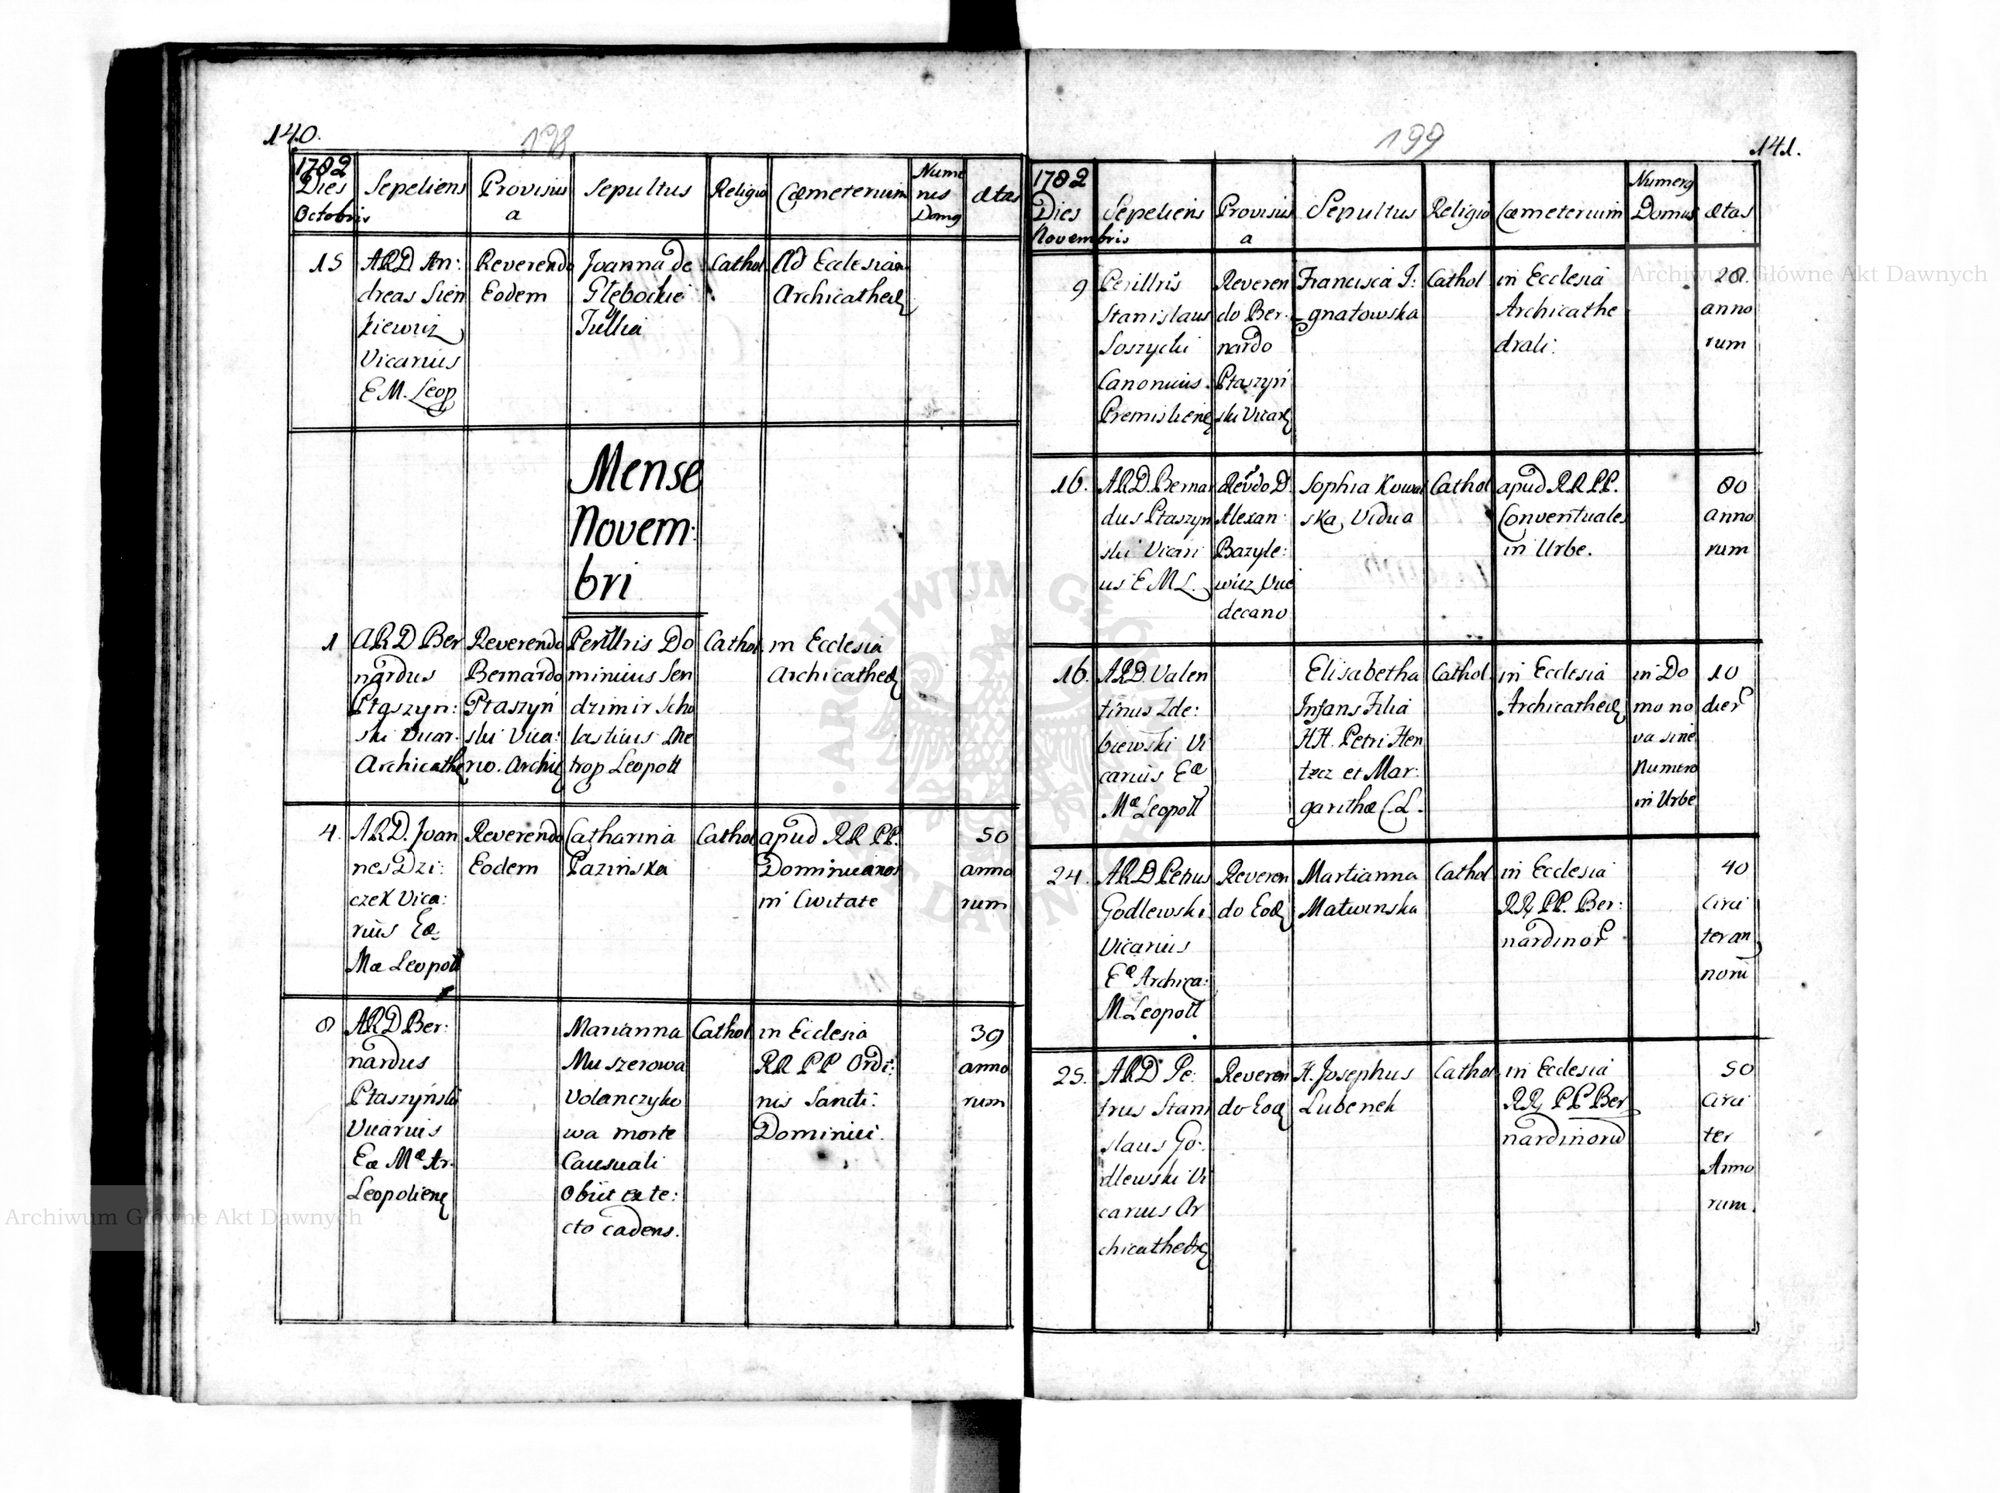 140.
198
1782
Dies
Octobris
Sepeliens
Provisus
a
Sepultus
Religio
Cæmeterium
Nume
rus
Domq
ætas
15
ARD An:
dreas Sien
kiewicz
Vicarius
E M. Leop
Reverendo
Eodem
Joanna de
Głębockie
Jullia
Cathol
Ad Ecclesiam
Archicathed
Mense
Novem:
bri
1
ARD Ber
nardus
Ptaszyn:
ski Vicar.
Archicathe
Reverendo
Bernardo
Ptaszyń
ski Vica:
rio. Archic
Perillris Do
minicus Sen
dzimir Scho
lasticus Me
trop Leopoll
Cathol
in Ecclesia
Archicathed
4.
ARD. Joan
nes Dzi:
czek Vica:
rius Eæ
Mæ Leopoll
Reverendo
Eodem
Catharina
Pazinska
Cathol
apud RR PP.
Dominicanos
in Civitate
50
anno
rum
8
ARD Ber:
nardus
Ptaszyński
Vicarius
Eæ Mæ Ar.
Leopoliens
Marianna
Muszerowa
Volanczyko
wa morte
Causuali
obiit ex te:
cto cadens.
Cathol
in Ecclesia
RR PP Ordi:
nis Sancti:
Dominici.
39
anno
rum
199
141.
1782
Dies
Novembris
Sepeliens
Provisus
a
Sepultus
Religio
Cæmeterium
Numerq
Domus
ætas
9
Perillris
Stanislaus
Soszycki
Canonicus.
Premisliens
Reveren
do Ber:
nardo
Ptaszyń
ski Vicar
Francisca J:
gnatowska
Cathol
in Ecclesia
Archicathe
drali:
28.
anno
rum
16.
ARD. Berna
dus Ptaszyn
ski Vicari
us E M L.
Revdo D.
Alexan:
Bazyle:
wicz Vice
decano
Sophia Kowal
ska, Vidua
Cathol
apud RR PP.
Conventuales
in Urbe.
80
anno
rum
16.
ARD. Valen
tinus Zde:
biewski Vi
carius Eæ
Mæ Leopoll
Elisabetha
Infans Filia
HH. Petri Hen
trez et Mar:
garithæ C. L.
Cathol
in Ecclesia
Archicathed
in Do
mo no
va sine
Numero
in Urbe
10
dier
24.
ARD Petrus
Godlewski
Vicarius
Eæ Archica:
M Leopoll
Reveren
do Eod
Martianna
Matwinska
Cathol
in Ecclesia
RR PP. Ber:
nardinor
40
circi
ter an
norũ
25.
ARD Pe:
trus Stani
slaus Go:
dlewski Vi
carius Ar
chicathedr
Reveren
do Eod
H. Josephus
Lubenek
Cathol
in Ecclesia
RR PP Ber
nardinorũ
50
circi
ter
Anno
rum.
Archiwum Główne Akt Dawnych
Archiwum Główne Akt Dawnych